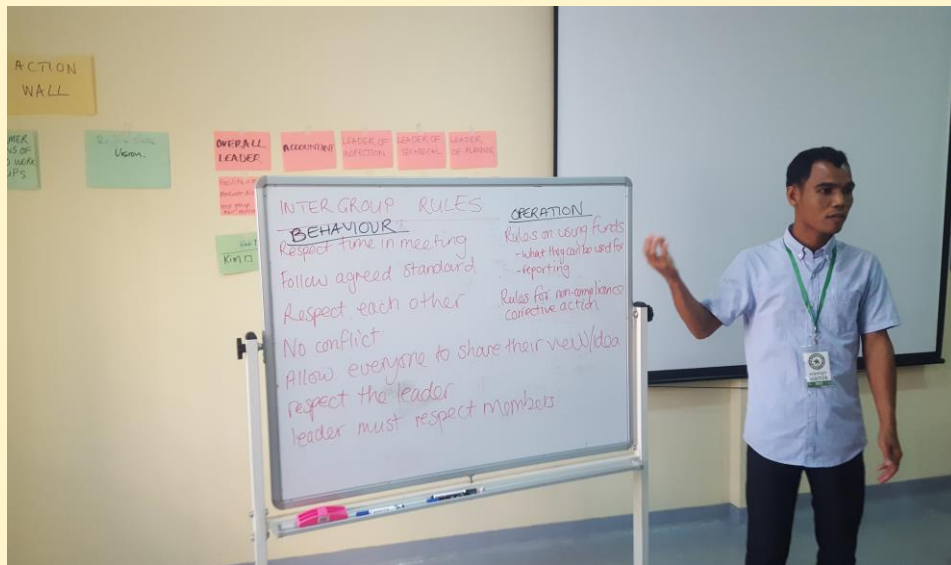 ACTION
WALL
Vision
OVERALL
LEADER
ACCOUNTING
LEADER OF
INSPECTION
LEADER OF
TECHNICAL
LEADER
OF PLANNING
Kim
INTER GROUP RULES
BEHAVIOUR
Respect time in meeting
Follow agreed standard
Respect each other
No conflict
Allow everyone to share their view/idea
respect the leader
leader must respect members
OPERATION
Rules on using funds
- what they can be used for
- reporting
Rules for non-compliance
corrective action